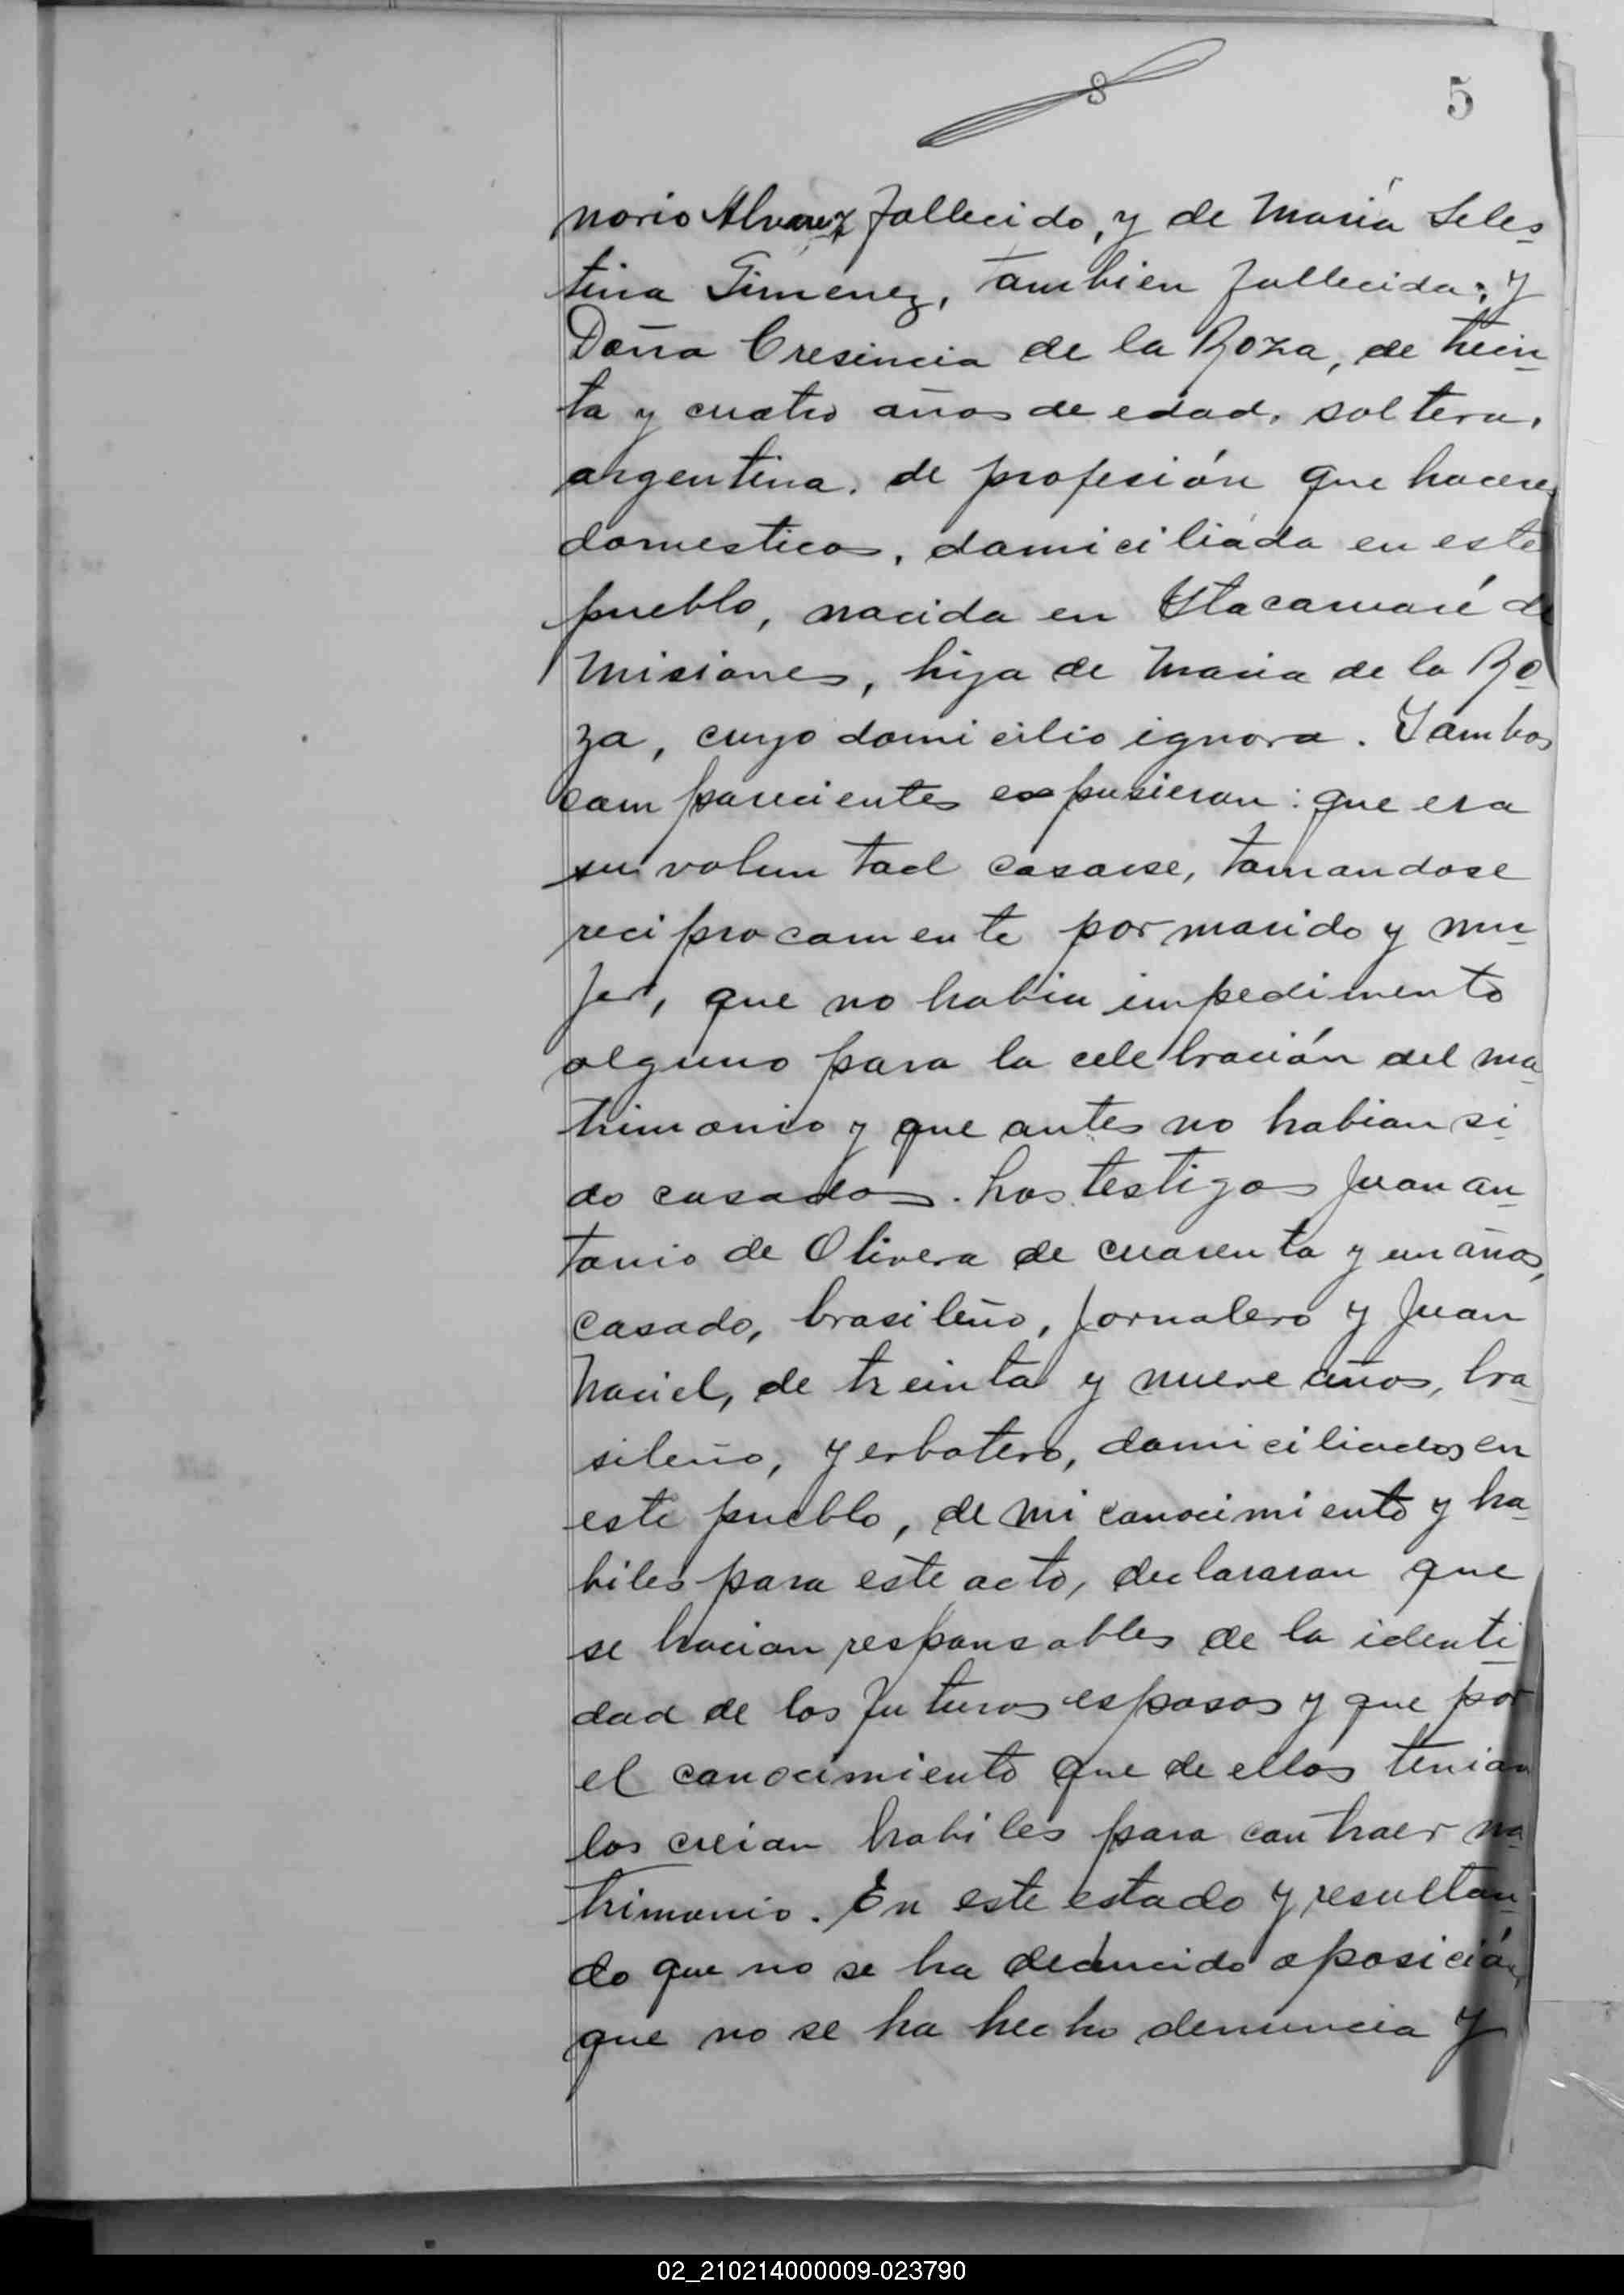 8
5
norio Alvarez fallecido, y de María Seles-
tina Gimenez, tambien fallecida; y
Doña Cresencia de la Roza, de trein-
ta y cuatro años de edad, soltera,
argentina, de profesión que haceres
domesticos, domiciliada en este
pueblo, nacida en Itacaruaré de
Misiones, hija de Maria de la Ro-
za, cuyo domicilio ignora. Y ambos
comparecientes expusieron: que era
su voluntad casarse, tomandose
reciprocamente por marido y mu-
jer, que no habia impedimento
alguno para la celebración del ma-
trimonio y que antes no habian si-
do casados. Los testigos Juan An-
tonio de Olivera de cuarenta y un años,
casado, brasileño, jornalero y Juan
Maciel, de treinta y nueve años, bra-
sileño, yerbatero, domiciliados en
este pueblo, de mi conocimiento y ha-
biles para este acto, declararon que
se hacian responsables de la identi-
dad de los futuros esposos y que por
el conocimiento que de ellos tenian
los creian habiles para contraer ma-
trimonio. En este estado y resultan-
do que no se ha deducido oposición,
que no se ha hecho denuncia y
02_210214000009-023790